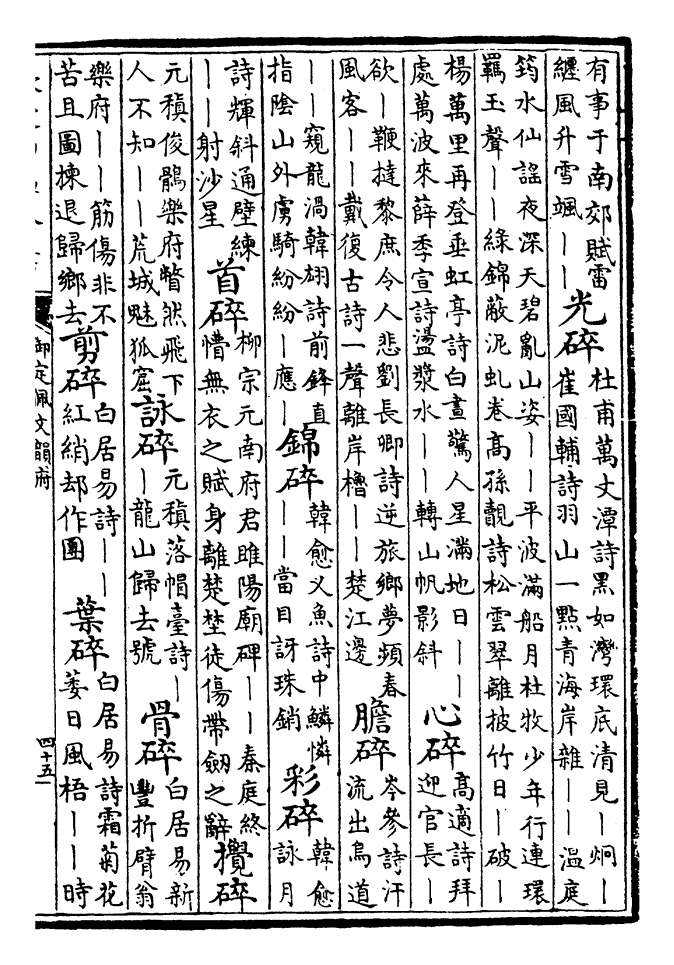 有事于南郊賦雷
纏風升雪颯丨丨
光碎
杜甫萬丈潭詩黑如灣環底清見丨炯丨
崔國輔詩羽山一點青海岸雜丨丨溫庭
筠水仙謠夜深天碧亂山姿丨丨平波滿船月杜牧少年行連環
羈玉聲丨丨綠錦蔽泥虬卷高孫覿詩松雲翠離披竹日丨破丨
楊萬里再登垂虹亭詩白晝驚人星滿地日丨丨
處萬波來薛季宣詩盪漿水丨丨轉山帆影斜
心碎
高適詩拜
迎官長丨
欲丨鞭撻黎庶令人悲劉長卿詩逆旅鄉夢頻春
風客丨丨戴復古詩一聲離岸櫓丨丨楚江邊
膽碎
岑參詩汗
流出鳥道
丨丨窺龍渦韓翃詩前鋒直
指陰山外虜騎紛紛丨應丨
錦碎
韓愈乂魚詩中鱗憐
丨丨當目訝珠銷
彩碎
韓愈
詠月
詩輝斜通壁練
丨丨射沙星
首碎
柳宗元南府君睢陽廟碑丨丨秦庭終
懵無衣之賦身離楚埜徒傷帶劒之辭
攪碎
元稹俊鶻樂府瞥然飛下
人不知丨丨荒城魅狐窟
詠碎
元稹落帽臺詩丨
丨龍山歸去號
骨碎
白居易新
豐折臂翁
樂府丨丨筋傷非不
苦且圖揀退歸鄉去
剪碎
白居易詩丨丨
紅綃却作團
葉碎
白居易詩霜菊花
萎日風梧丨丨時
御定佩文韻府
四十五